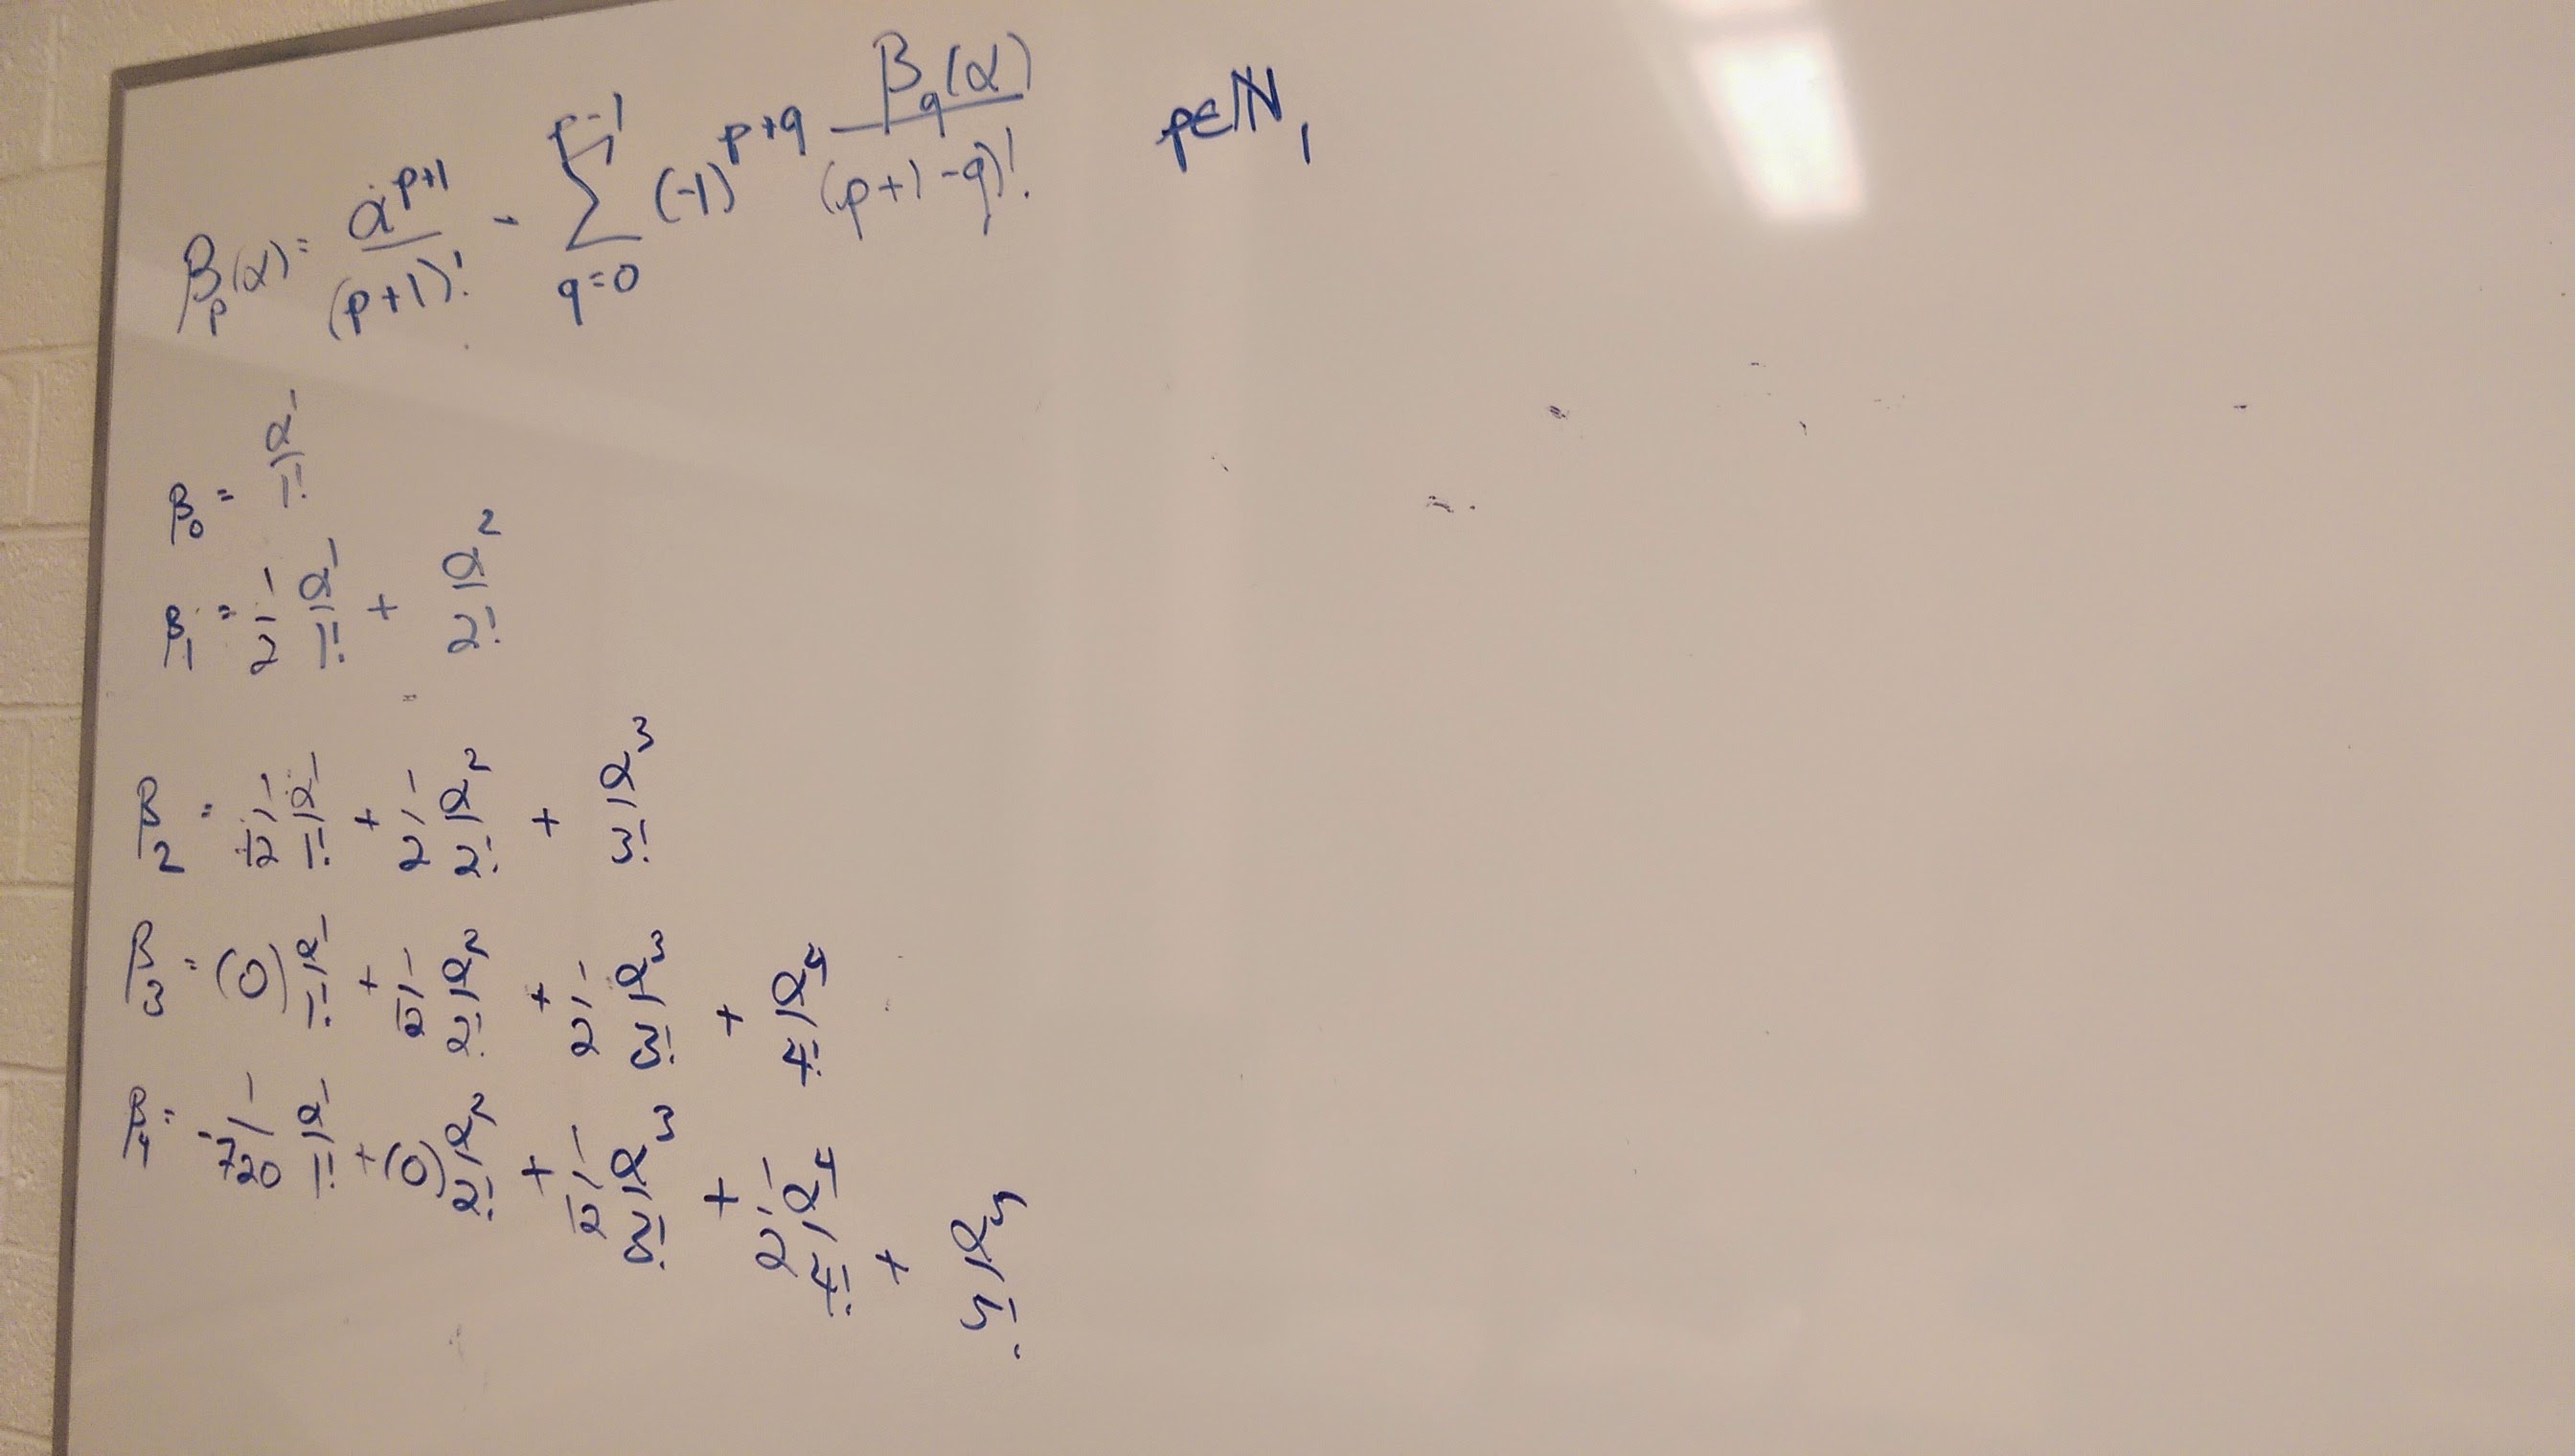 β_p(α) = α^{p+1}/(p+1)! - ∑_{q=0}^{p-1} (-1)^{p+q} β_q(α)/(p+1-q)!   p∈ℕ_1
β_0 = α^1/1!
β_1 = 1/2 α^1/1! + α^2/2!
β_2 = 1/12 α^1/1! + 1/2 α^2/2! + α^3/3!
β_3 = (0) α^1/1! + 1/12 α^2/2! + 1/2 α^3/3! + α^4/4!
β_4 = -1/720 α^1/1! + (0) α^2/2! + 1/12 α^3/3! + 1/2 α^4/4! + α^5/5!